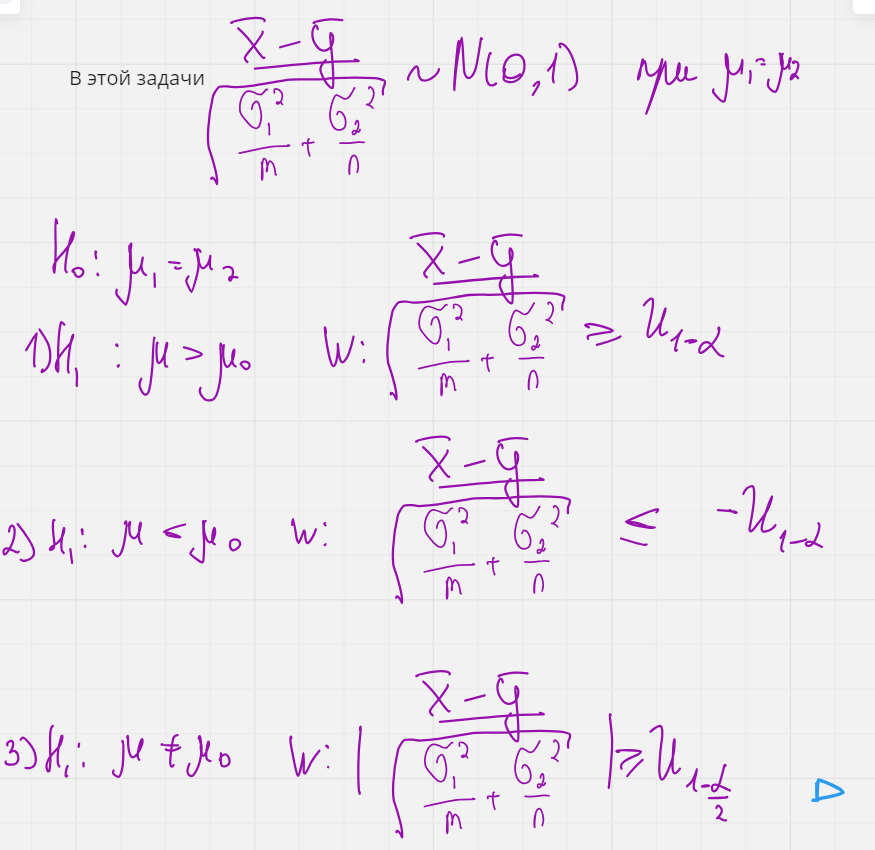 В этой задачи (x̄ - ȳ) / √(σ₁²/m + σ₂²/n) ~ N(0,1) при μ₁=μ₂
H₀: μ₁ = μ₂
1) H₁ : μ > μ₀ W: (x̄ - ȳ) / √(σ₁²/m + σ₂²/n) ≥ u₁₋α
2) H₁: μ < μ₀ W: (x̄ - ȳ) / √(σ₁²/m + σ₂²/n) ≤ -u₁₋α
3) H₁: μ ≠ μ₀ W: |(x̄ - ȳ) / √(σ₁²/m + σ₂²/n)| ≥ u_{1-α/2}